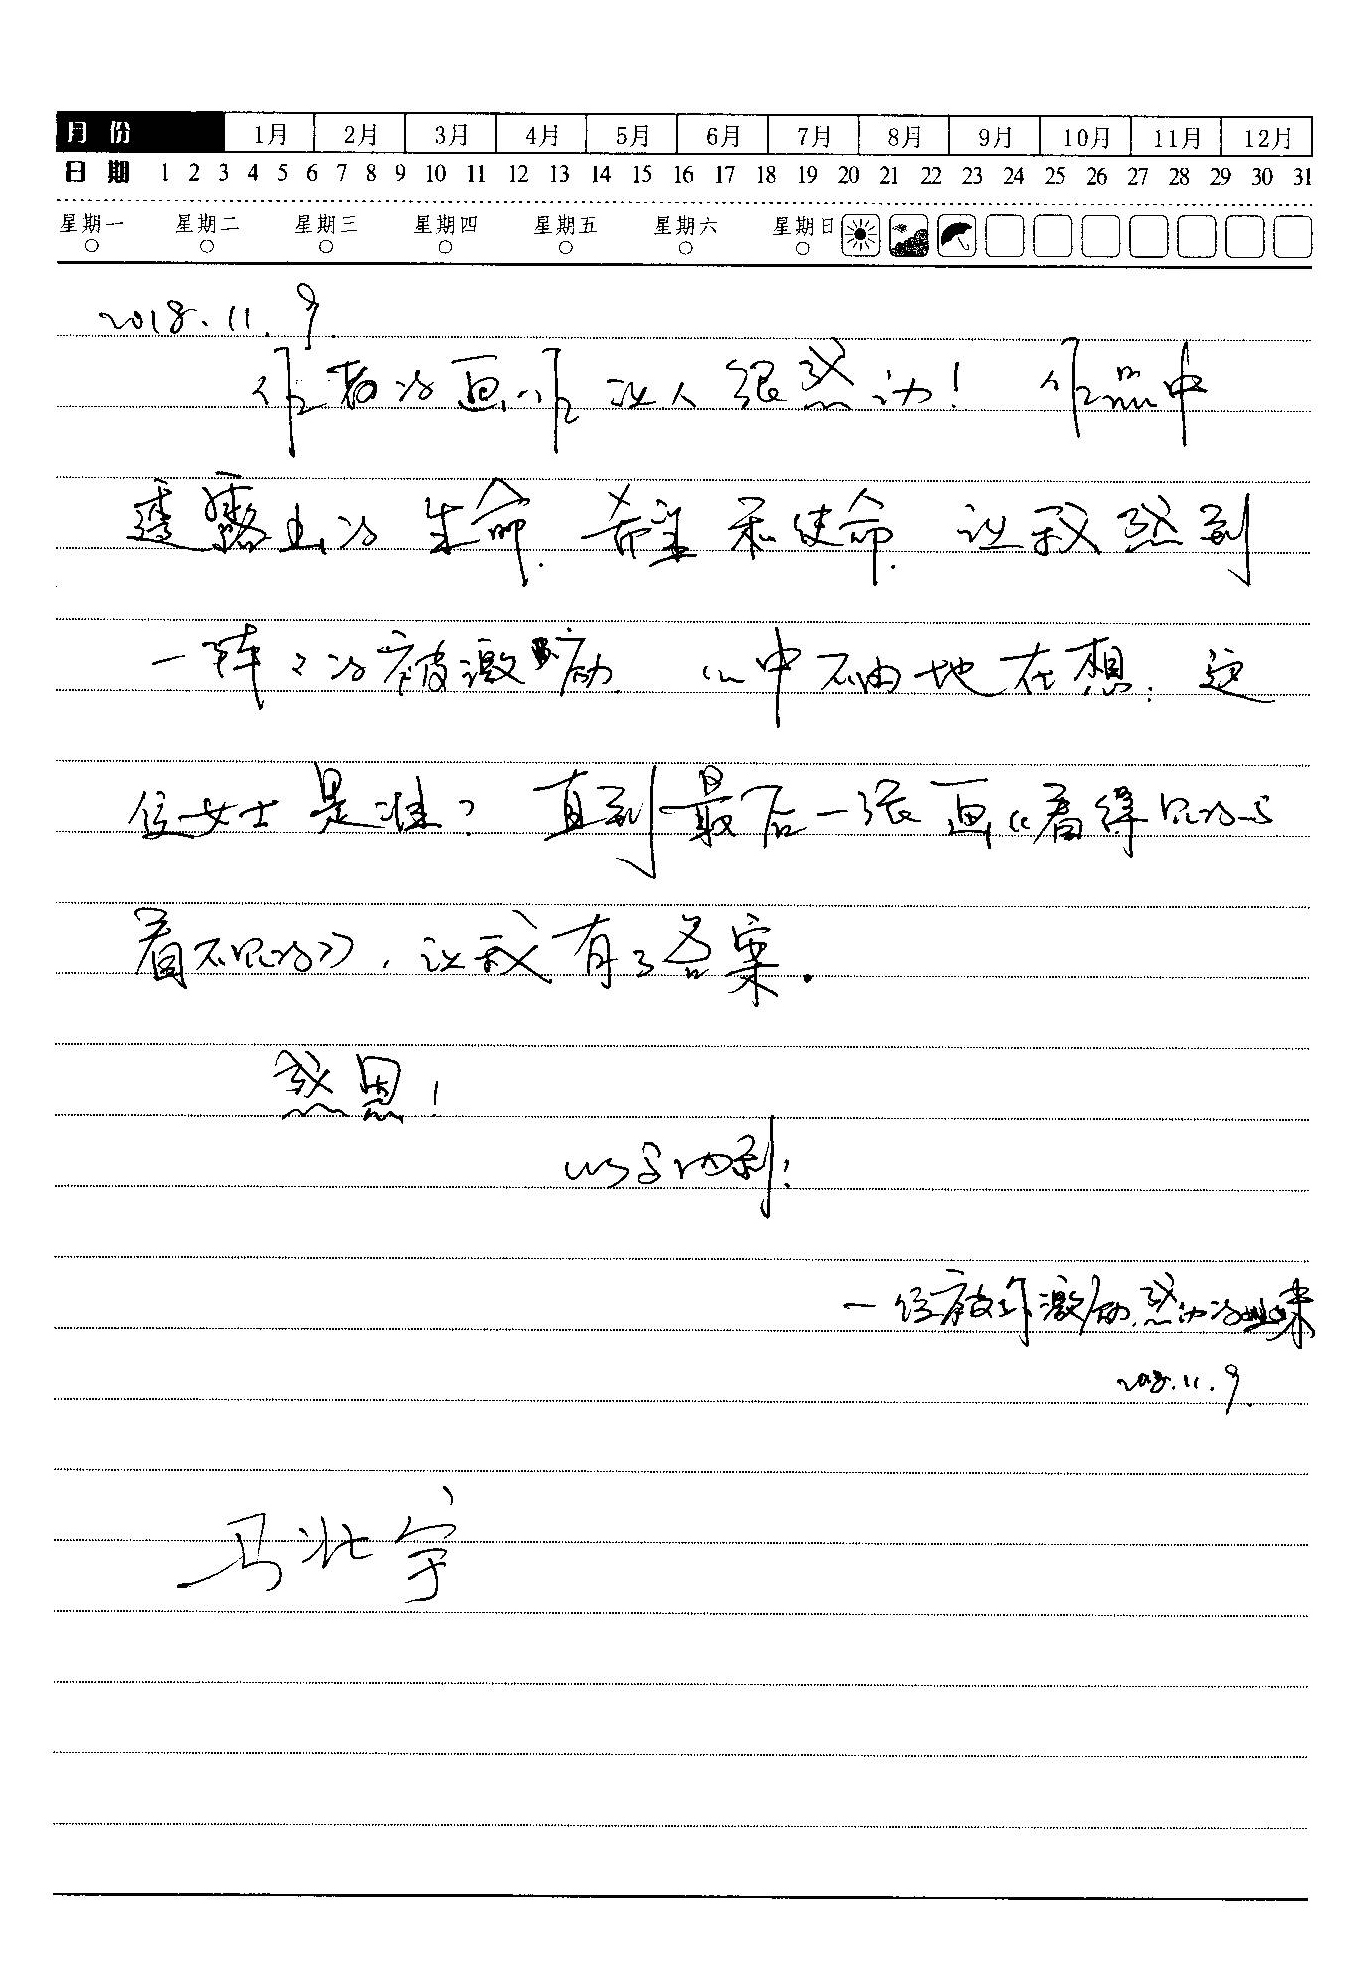 月份 1月 2月 3月 4月 5月 6月 7月 8月 9月 10月 11月 12月
日期 1 2 3 4 5 6 7 8 9 10 11 12 13 14 15 16 17 18 19 20 21 22 23 24 25 26 27 28 29 30 31
星期一 星期二 星期三 星期四 星期五 星期六 星期日
2018.11.9.
作者的画作让人很感动! 作品中
透露出的生命、希望和使命、让我感到
一阵々的被激励、心中不由地在想:这
位女士是谁? 直到最后一张画《看得见的与
看不见的》,让我有了答案。
感恩!
以马内利!
一位被你激励、感动的
2018.11.9.
马壮宇